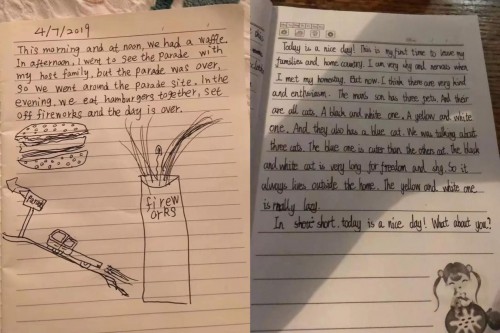 4/7/2019
This morning and at noon, we had a waffle.
In afternoon, I went to see the Parade with
my host family, but the parade was over,
so we went around the parade site. In the
evening, we eat hamburgers together, set
off fireworks and the day is over.
Parade
firew
orks
Today is a nice day! This is my first time to leave my
families and home country. I am very shy and nervous when
I met my homestay. But now. I think them are very kind
and enthusiasm. The man's son has three pets. And their
are all cats. A black and white one. A yellow and white
one. And they also has a blue cat. We was talking about
three cats. The blue one is cuter than the others cat. The black
and white cat is very long for freedom and shy. So it
always lives outside the home. The yellow and white one
is really lazy.
In short. today is a nice day! What about you?